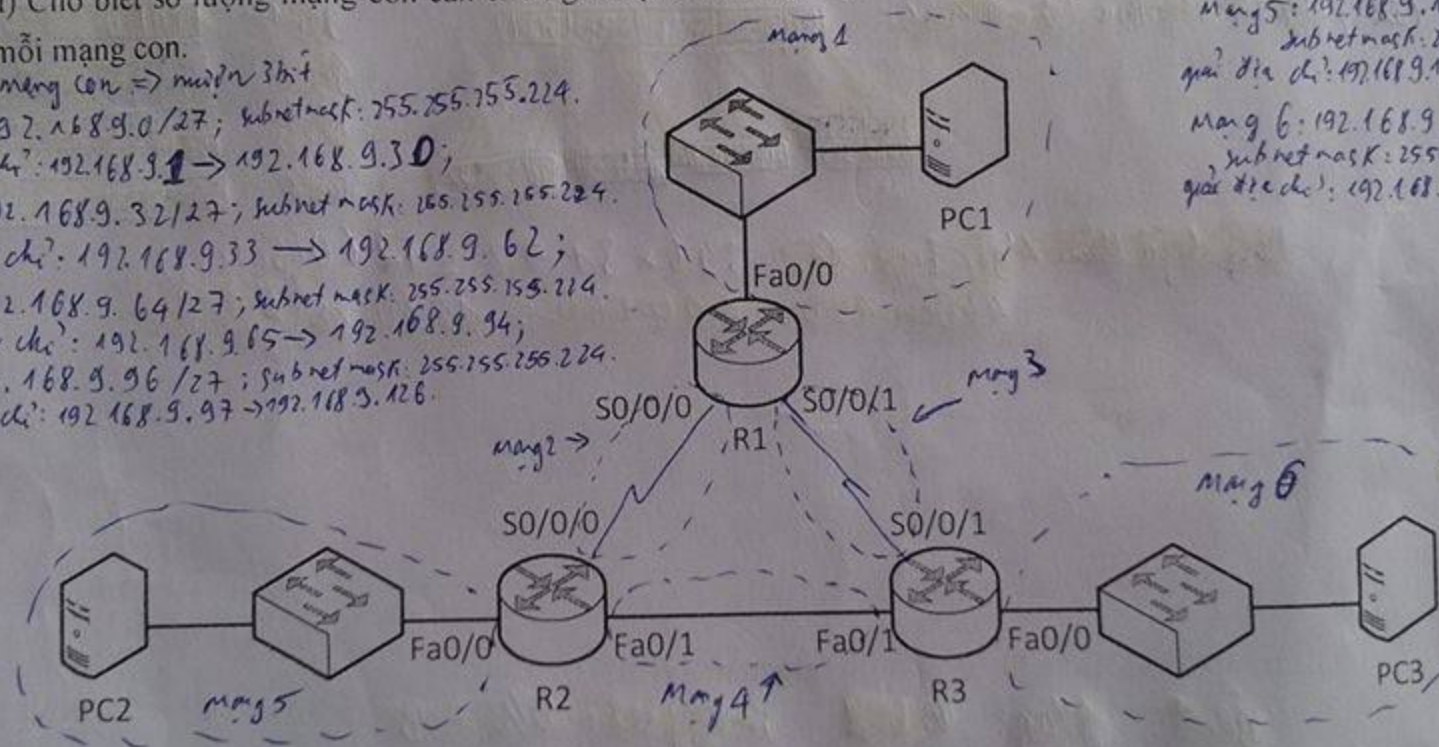 1) Cho biết số lượng mạng con cần
mỗi mạng con.
mạng con => mượn 3 bit
92.168.9.0/27; subnetmask: 255.255.255.224.
chỉ: 192.168.9.1 → 192.168.9.30;
2.168.9.32/27; subnet mask: 255.255.255.224.
chỉ: 192.168.9.33 → 192.168.9.62;
2.168.9.64/27; subnet mask: 255.255.255.224.
chỉ: 192.168.9.65 → 192.168.9.94;
.168.9.96/27; subnet mask: 255.255.255.224.
chỉ: 192.168.9.97 → 192.168.9.126.
mạng 5: 192.168.9.1
subnetmask: 2
địa chỉ: 192.168.9.1
mạng 6: 192.168.9
subnet mask: 255
địa chỉ: 192.168.
mạng 1
PC1
Fa0/0
mạng 3
S0/0/0
S0/0/1
R1
mạng 2 →
mạng 6
S0/0/0
S0/0/1
Fa0/0
Fa0/1
Fa0/1
Fa0/0
PC2
mạng 5
R2
mạng 4
R3
PC3